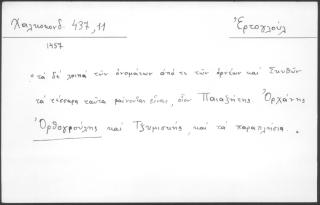 Χαλκοκονδ. 437,11
Ἐρτογλούλ
1457
"τὰ δὲ λοιπὰ τῶν ὀνομάτων ἀπό τε τῶν ὀρέων καὶ Σκυθῶν
τὰ τέσσαρα ταῦτα φαίνονται εἶναι, οἷον Παιαζήτης Ὀρχάνης
Ὀρθογρούλης καὶ Τζιμισκής, καὶ τὰ παραπλήσια.